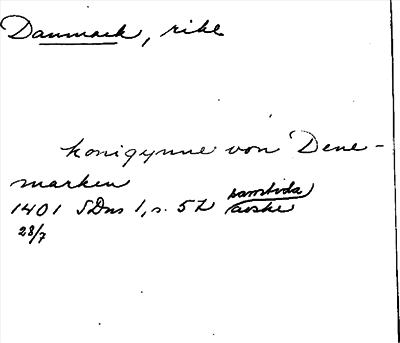 Danmark, rike
konigynne von Dene-
marken
1401 SDns 1, s. 52 samtida
28/7 avskr